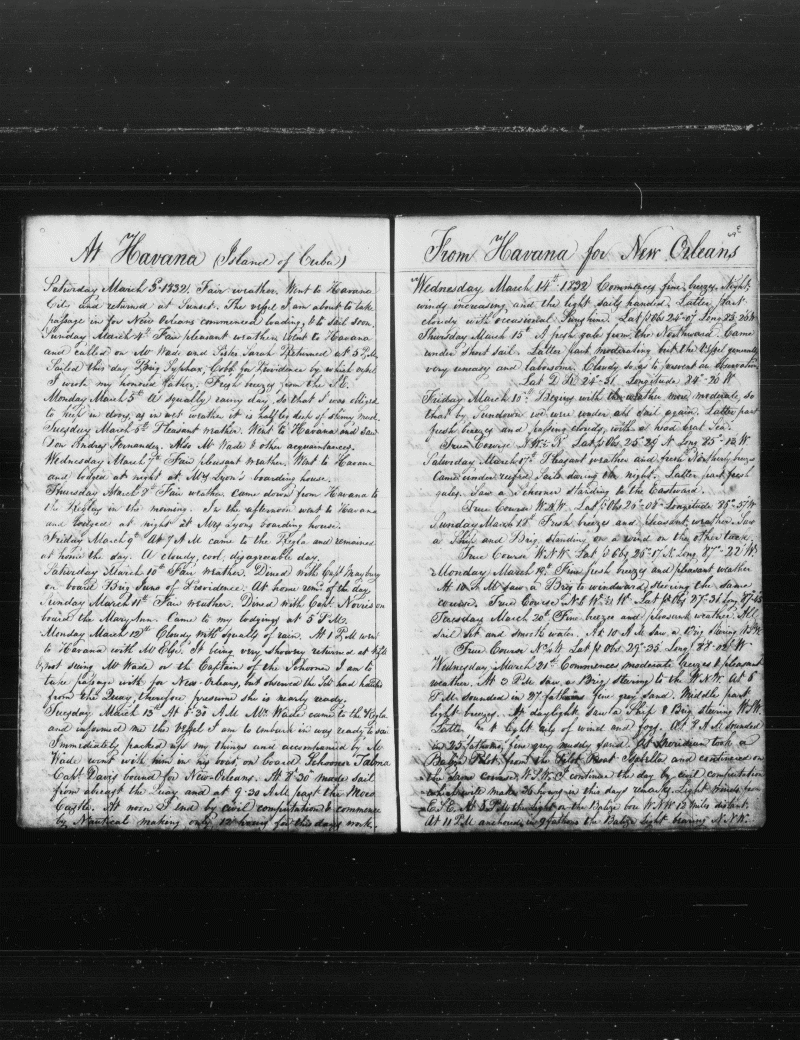 At Havana (Island of Cuba)
Saturday March 3d 1832. Fair weather. Went to Havana
and returned at Sunset. The vessel I am about to take
passage in for New Orleans commenced loading, & to sail soon.
Sunday March 4th Fair pleasant weather. Went to Havana
and called on Mr Wade and Returned at 5 P.M.
Sailed this day Brig Syphax, Cobb for Providence by which vessel
I wrote my honored father. Fresh breezes from the S.E.
Monday March 5th A squally rainy day, so that I was obliged
to keep in doors, as in wet weather it is half leg deep of slimy mud.
Tuesday March 6th Pleasant weather. Went to Havana and saw
Don Andres Fernander. Also Mr Wade & other acquaintances.
Wednesday March 7th Fair pleasant weather. Went to Havana
and lodged at night at Mrs Lyon's boarding house.
Thursday March 8th Fair weather came down from Havana to
the Regla in the morning. In the afternoon went to Havana
and lodged at night at Mrs Lyons boarding house.
Friday March 9th At 7 A M came to the Regla and remained
at home the day. A cloudy, cool, disagreeable day.
Saturday March 10th Fair weather. Dined with Capt Mayberry
on board Brig Juno of Providence. At home rem. of the day
Sunday March 11th Fair weather. Dined with Capt. Norris on
board the Mary Ann. Came to my lodgings at 5 P.M.
Monday March 12th Cloudy with squalls of rain. At 1 P.M went
to Havana with Mr It being very showery returned at
not seeing Mr Wade or the Captain of the Schooner I am to
take passage with for New Orleans, but observed the Sch had hauled
from the Quay, therefore presume she is nearly ready.
Tuesday March 13th At 6·30 A.M Mr Wade came to the Regla
and informed me the vessel I am to embark in was ready to sail
Immediately packed up my things and accompanied by Mr
Wade went with him in my boat, on board Schooner Talma
Capt Davis bound for New-Orleans. At 8·30 made sail
from abreast the Quay and at 9·30 A.M past the Moro
Castle. At noon I end by civil computation & commence
by Nautical making only 12 hours for this days work.
From Havana for New Orleans
Wednesday March 14th 1832 Commences fine breezes. Night
winds increasing and the light sails handed. Latter part
cloudy with occasional Sunshine. Lat p Obs 24°07 Long 83·25 W
Thursday March 15th A fresh gale from the Northward. Came
under short sail. Latter part moderating but the vessel generally
very uneasy and laborsome. Cloudy so as to prevent an observation
Lat D R. 24-51. Longitude 84-20 W
Friday March 16th Begins with the weather more moderate, so
that by Sundown we were under all sail again. Latter part
fresh breezes and passing clouds, with a head beat Sea.
True Course Lat p Obs 25-29 N Long 85-12 W
Saturday March 17th Pleasant weather and fresh breezes
Came under reefed sails during the night. Latter part fresh
gales. Saw a schooner standing to the Eastward.
True Course W.N.W. Lat p Obs Longitude 85-57 W
Sunday March 18th Fresh breezes and pleasant weather. Saw
a Ship and Brig standing on a wind on the other tack.
True Course W.N.W. Lat p Obs N. Long 87-22 W
Monday March 19th Fine fresh breezes and pleasant weather
At 10 A.M saw a Brig to windward steering the same
course. True Course Lat p Obs 27-36 Long 87-45
Tuesday March 20th Fine breezes and pleasant weather. All
sail set and smooth water. At 10 A M saw a Brig steering
True Course Lat p Obs 29-25 Long 88-02 W
Wednesday March 21st Commences moderate breezes & pleasant
weather. At 2 P.M saw a Brig steering to the W.N.W. At 6
P.M sounded in 27 fathoms fine grey sand. Middle part
light breezes. At daylight saw a Ship & Brig steering W.S.W.
Latter part light airs of wind and fog. At 7 A M sounded
in 25 fathoms, fine grey muddy sand. At Meridian took a
Balize Pilot from the Pilot Boat and continued on
the same course W.S.W. I continue the day by civil computation
which will make 36 hours in this days remarks. Light winds from
E.S.E. At 8 P.M the light on the Balize bore W.N.W 12 miles distant.
At 11 P.M anchored in 9 fathoms the Balize light bearing N.N.W.